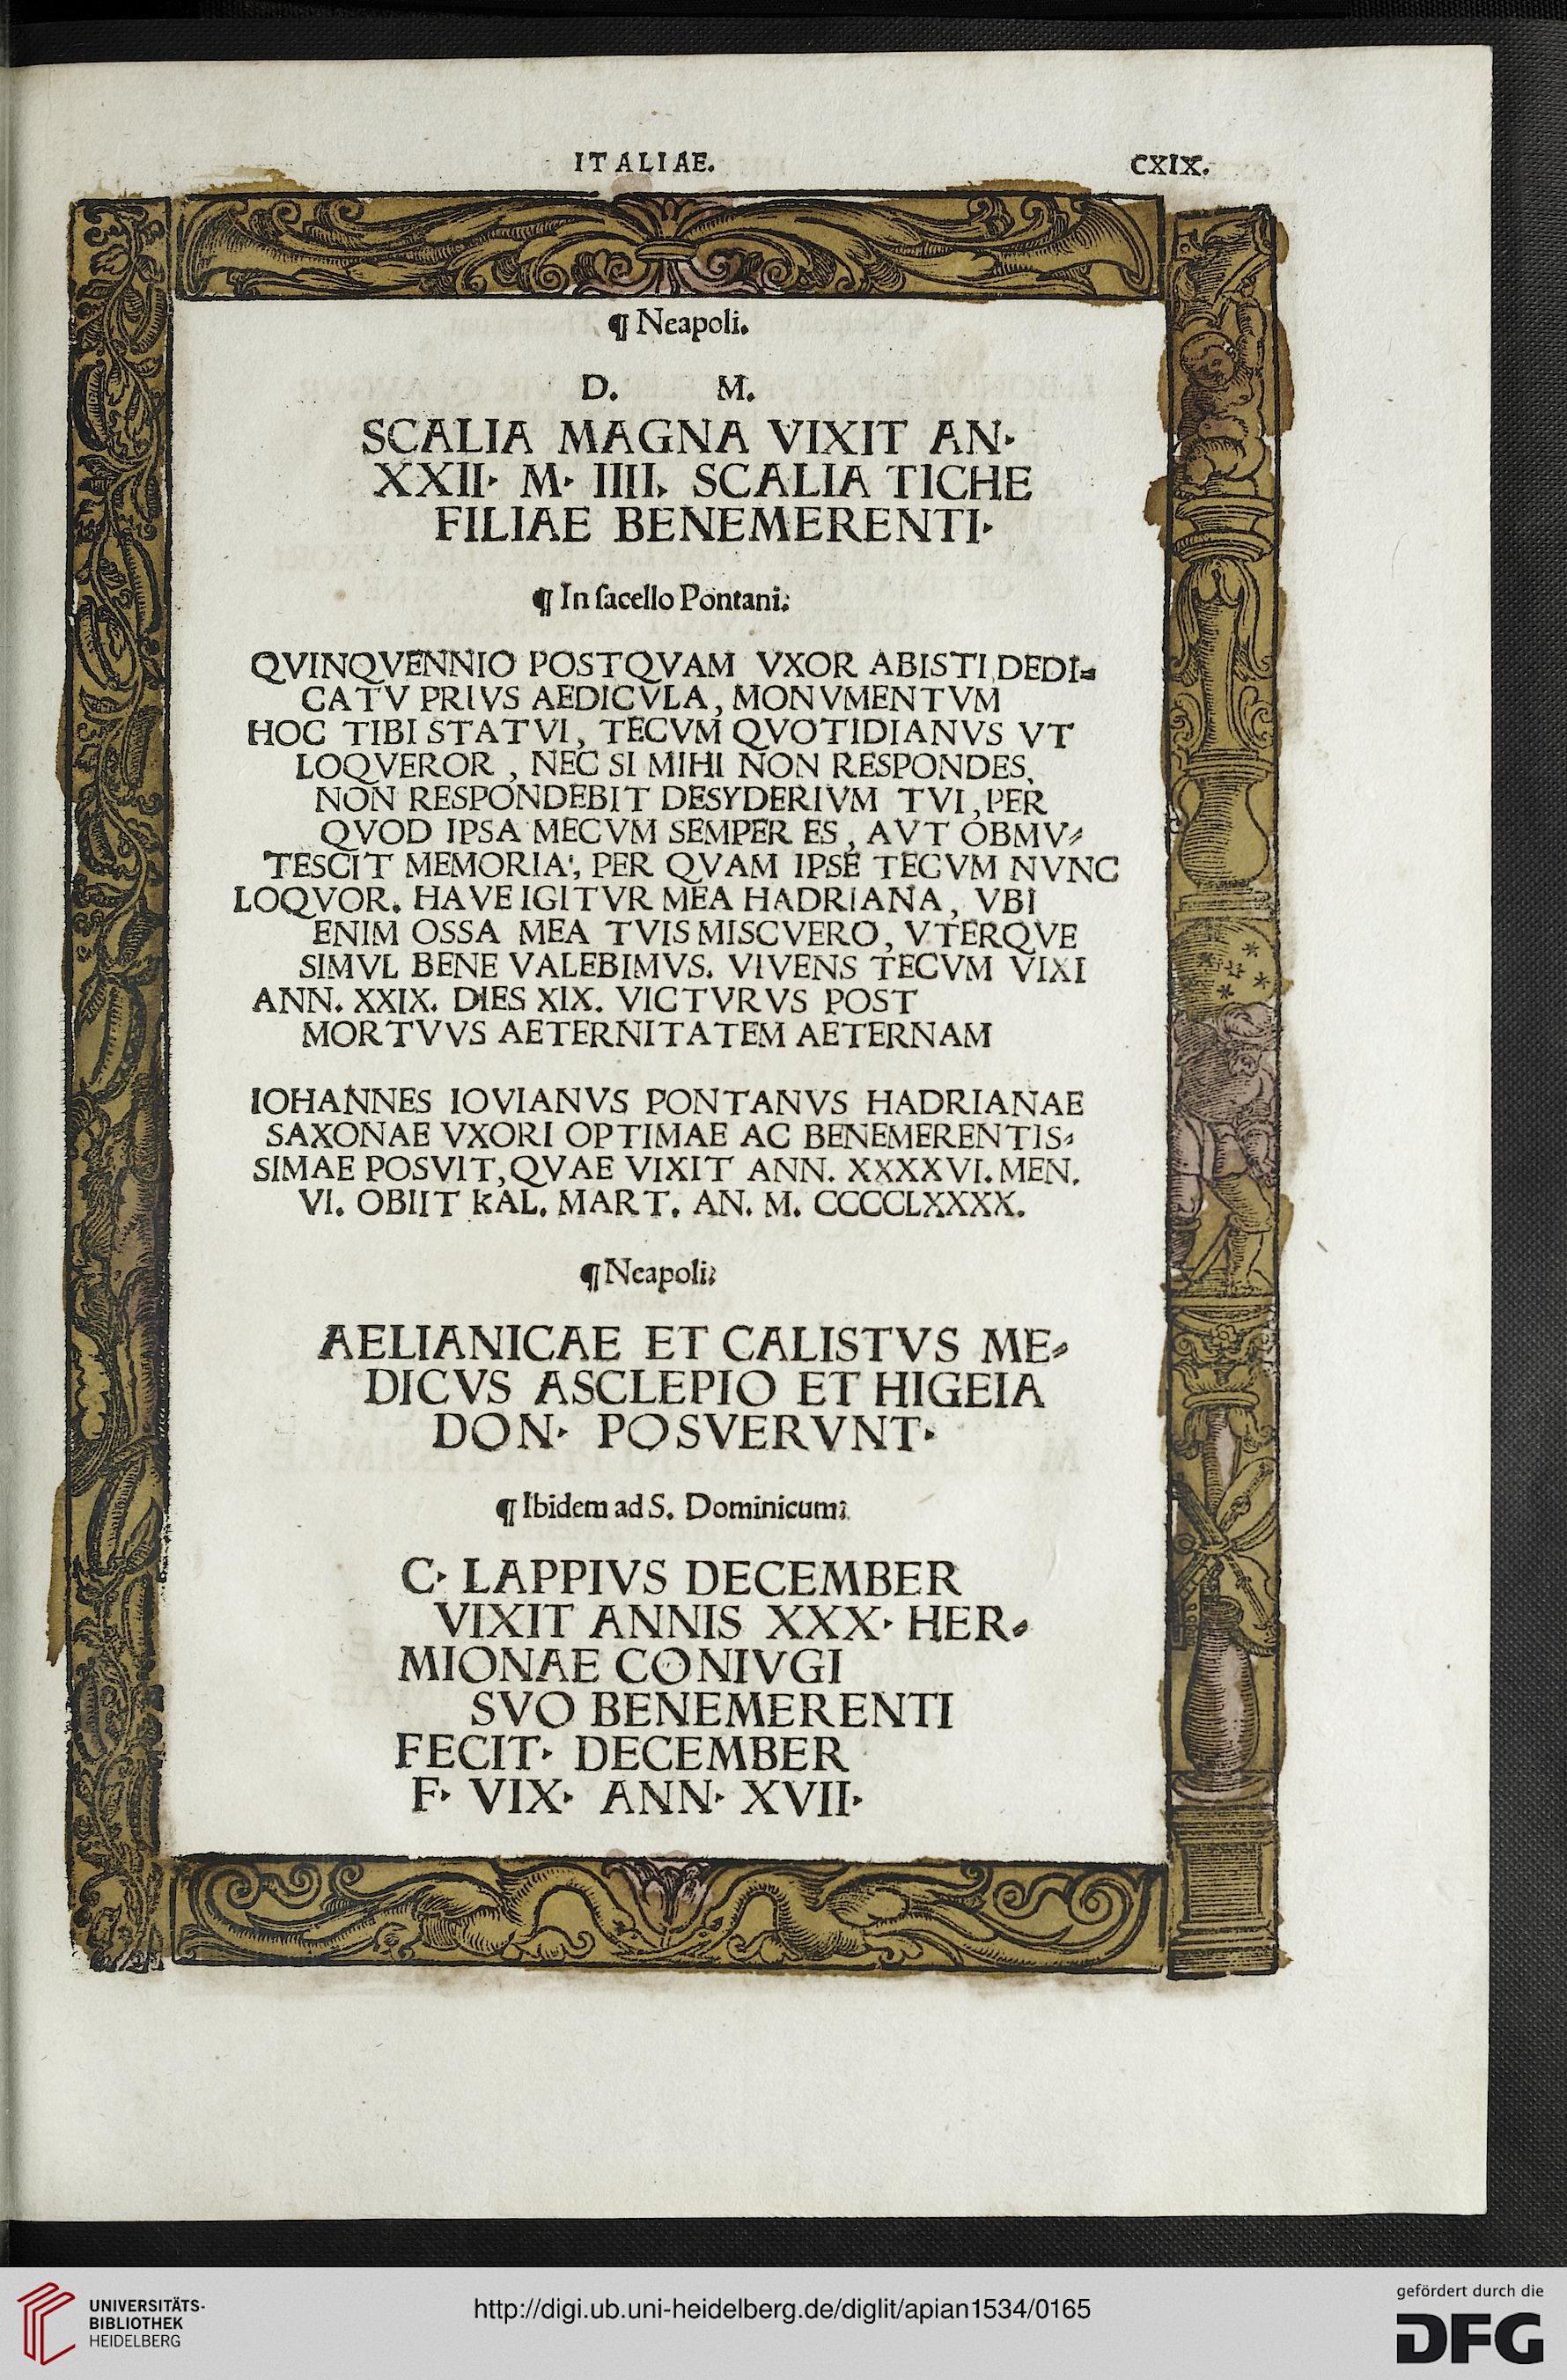 ITALIAE. CXIX.
¶ Neapoli.
D. M.
SCALIA MAGNA VIXIT AN·
XXII· M· IIII. SCALIA TICHE
FILIAE BENEMERENTI·
¶ In ſacello Pontani:
QVINQVENNIO POSTQVAM VXOR ABISTI DEDI⸗
CATV PRIVS AEDICVLA, MONVMENTVM
HOC TIBI STATVI, TECVM QVOTIDIANVS VT
LOQVEROR, NEC SI MIHI NON RESPONDES,
NON RESPONDEBIT DESYDERIVM TVI, PER
QVOD IPSA MECVM SEMPER ES, AVT OBMV⸗
TESCIT MEMORIA', PER QVAM IPSE TECVM NVNC
LOQVOR. HAVE IGITVR MEA HADRIANA, VBI
ENIM OSSA MEA TVIS MISCVERO, VTERQVE
SIMVL BENE VALEBIMVS. VIVENS TECVM VIXI
ANN. XXIX. DIES XIX. VICTVRVS POST
MORTVVS AETERNITATEM AETERNAM
IOHANNES IOVIANVS PONTANVS HADRIANAE
SAXONAE VXORI OPTIMAE AC BENEMERENTIS⸗
SIMAE POSVIT, QVAE VIXIT ANN. XXXXVI. MEN.
VI. OBIIT KAL. MART. AN. M. CCCCLXXXX.
¶ Neapoli:
AELIANICAE ET CALISTVS ME⸗
DICVS ASCLEPIO ET HIGEIA
DON· POSVERVNT·
¶ Ibidem ad S. Dominicum:
C· LAPPIVS DECEMBER
VIXIT ANNIS XXX· HER⸗
MIONAE CONIVGI
SVO BENEMERENTI
FECIT· DECEMBER
F· VIX· ANN· XVII·
UNIVERSITÄTS-
BIBLIOTHEK
HEIDELBERG
http://digi.ub.uni-heidelberg.de/diglit/apian1534/0165
gefördert durch die
DFG